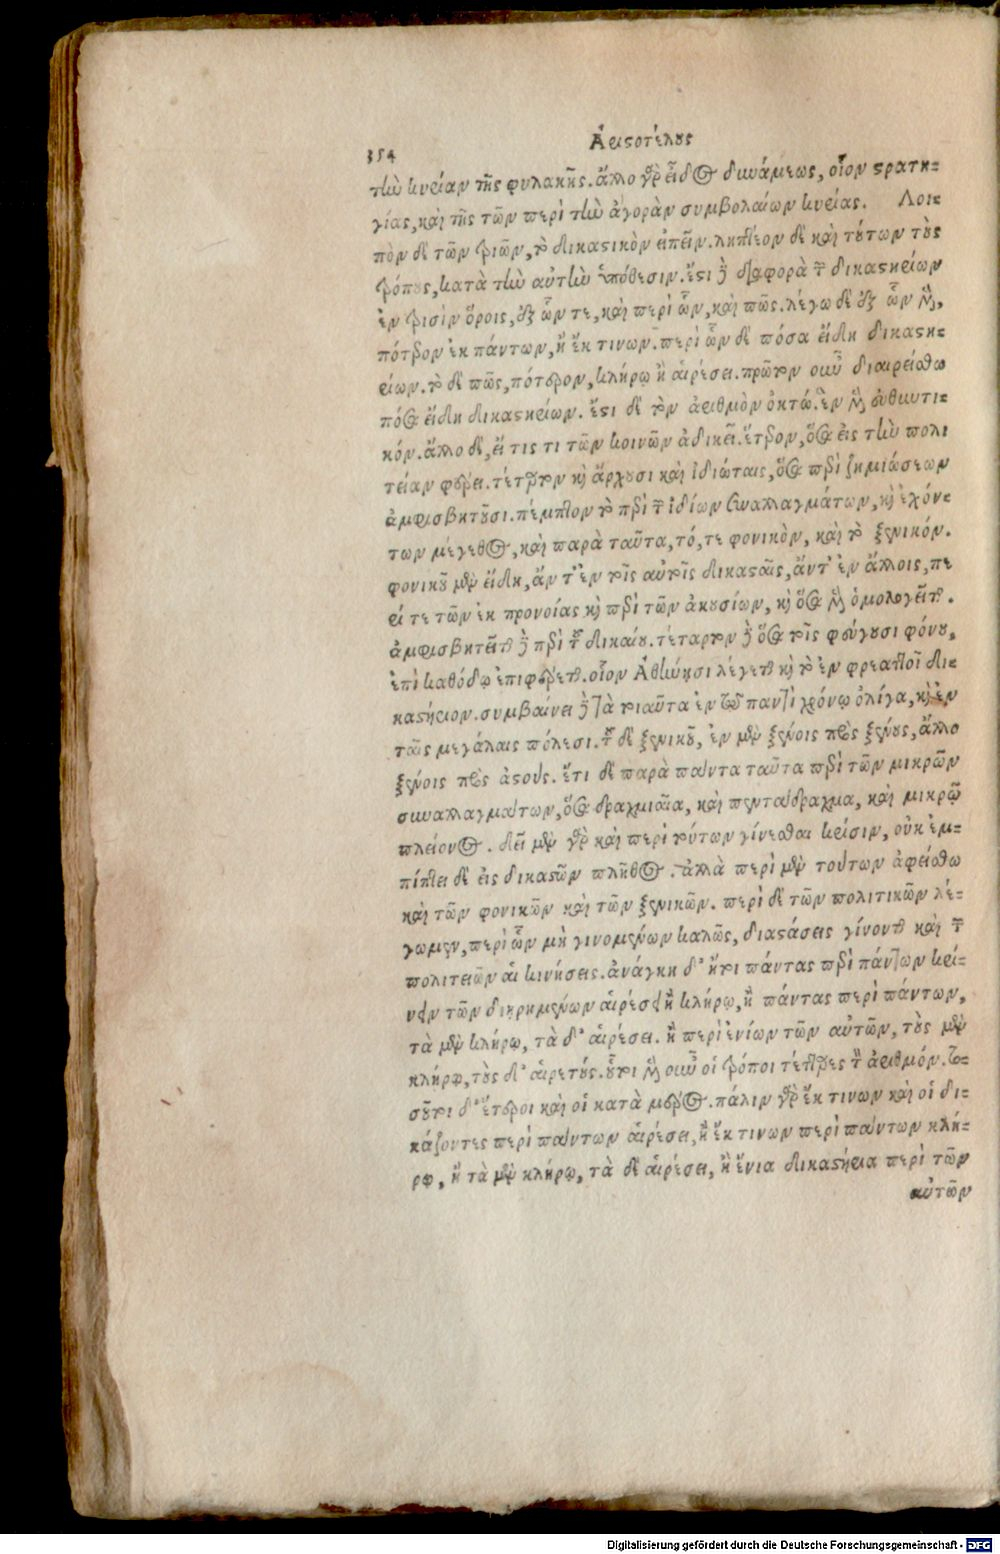 354
Ἀριστοτέλους
τὴν κυρίαν τῆς φυλακῆς. ἄλλο γὰρ εἶδος δυνάμεως, οἷον στρατη-
γίας, καὶ τῆς τῶν περὶ τὴν ἀγορὰν συμβολαίων κυρίας. Λοι-
πὸν δὲ τῶν τριῶν, τὸ δικαστικὸν εἰπεῖν. ληπτέον δὲ καὶ τούτων τοὺς
τρόπους, κατὰ τὴν αὐτὴν ὑπόθεσιν. ἔστι δὲ διαφορὰ τῶν δικαστηρίων
ἐν τρισὶν ὅροις, ἐξ ὧν τε, καὶ περὶ ὧν, καὶ πῶς. λέγω δὲ ἐξ ὧν μὲν,
πότερον ἐκ πάντων, ἢ ἔκ τινων. περὶ ὧν δὲ πόσα εἴδη δικαστη-
ρίων. τὸ δὲ πῶς, πότερον, κλήρῳ ἢ αἱρέσει. πρῶτον οὖν διαιρείσθω
πόσα εἴδη δικαστηρίων. ἔστι δὲ τὸν ἀριθμὸν ὀκτώ. ἓν μὲν εὐθυντι-
κόν. ἄλλο δὲ, εἴ τις τι τῶν κοινῶν ἀδικεῖ. ἕτερον, ὅσα εἰς τὴν πολι
τείαν φέρει. τέταρτον καὶ ἄρχουσι καὶ ἰδιώταις, ὅσα περὶ ζημιώσεων
ἀμφισβητοῦσι. πέμπτον τὸ περὶ τῶν ἰδίων συναλλαγμάτων, καὶ ἐχόν-
των μέγεθος, καὶ παρὰ ταῦτα, τό, τε φονικὸν, καὶ τὸ ξενικόν.
φονικοῦ μὲν εἴδη, ἄν τ' ἐν τοῖς αὐτοῖς δικασταῖς, ἄντ' ἐν ἄλλοις, πε
ρί τε τῶν ἐκ προνοίας καὶ περὶ τῶν ἀκουσίων, καὶ ὅσα μὲν ὁμολογεῖται.
ἀμφισβητεῖται δὲ περὶ τοῦ δικαίου. τέταρτον δὲ ὅσα τοῖς φεύγουσι φόνου,
ἐπὶ καθόδῳ ἐπιφέρεται. οἷον Ἀθήνησι λέγεται καὶ τὸ ἐν φρεαττοῖ δι-
καστήριον. συμβαίνει δὲ τὰ τοιαῦτα ἐν τῷ παντὶ χρόνῳ ὀλίγα, καὶ ἐν
ταῖς μεγάλαις πόλεσι. τοῦ δὲ ξενικοῦ, ἐν μὲν ξένοις πρὸς ξένους, ἄλλο
ξένοις πρὸς ἀστούς. ἔτι δὲ παρὰ πάντα ταῦτα περὶ τῶν μικρῶν
συναλλαγμάτων, ὅσα δραχμιαῖα, καὶ πεντάδραχμα, καὶ μικρῷ
πλείονος. δεῖ μὲν γὰρ καὶ περὶ τούτων γίνεσθαι κρίσιν, οὐκ ἐμ-
πίπτει δὲ εἰς δικαστῶν πλῆθος. ἀλλὰ περὶ μὲν τούτων ἀφείσθω
καὶ τῶν φονικῶν καὶ τῶν ξενικῶν. περὶ δὲ τῶν πολιτικῶν λέ-
γωμεν, περὶ ὧν μὴ γινομένων καλῶς, διαστάσεις γίνονται καὶ τῶν
πολιτειῶν αἱ κινήσεις. ἀνάγκη δ' ἤτοι πάντας περὶ πάντων κρί-
νειν τῶν διῃρημένων αἱρέσει ἢ κλήρῳ, ἢ πάντας περὶ πάντων,
τὰ μὲν κλήρῳ, τὰ δ' αἱρέσει. ἢ περὶ ἐνίων τῶν αὐτῶν, τοὺς μὲν
κλήρῳ, τοὺς δ' αἱρετούς. οὗτοι μὲν οὖν οἱ τρόποι τέτταρες τὸν ἀριθμόν. το-
σοῦτοι δ' ἕτεροι καὶ οἱ κατὰ μέρος. πάλιν γὰρ ἔκ τινων καὶ οἱ δι-
κάζοντες περὶ πάντων αἱρέσει, ἢ ἔκ τινων περὶ πάντων κλή-
ρῳ, ἢ τὰ μὲν κλήρῳ, τὰ δὲ αἱρέσει, ἢ ἔνια δικαστήρια περὶ τῶν
αὐτῶν
Digitalisierung gefördert durch die Deutsche Forschungsgemeinschaft - DFG